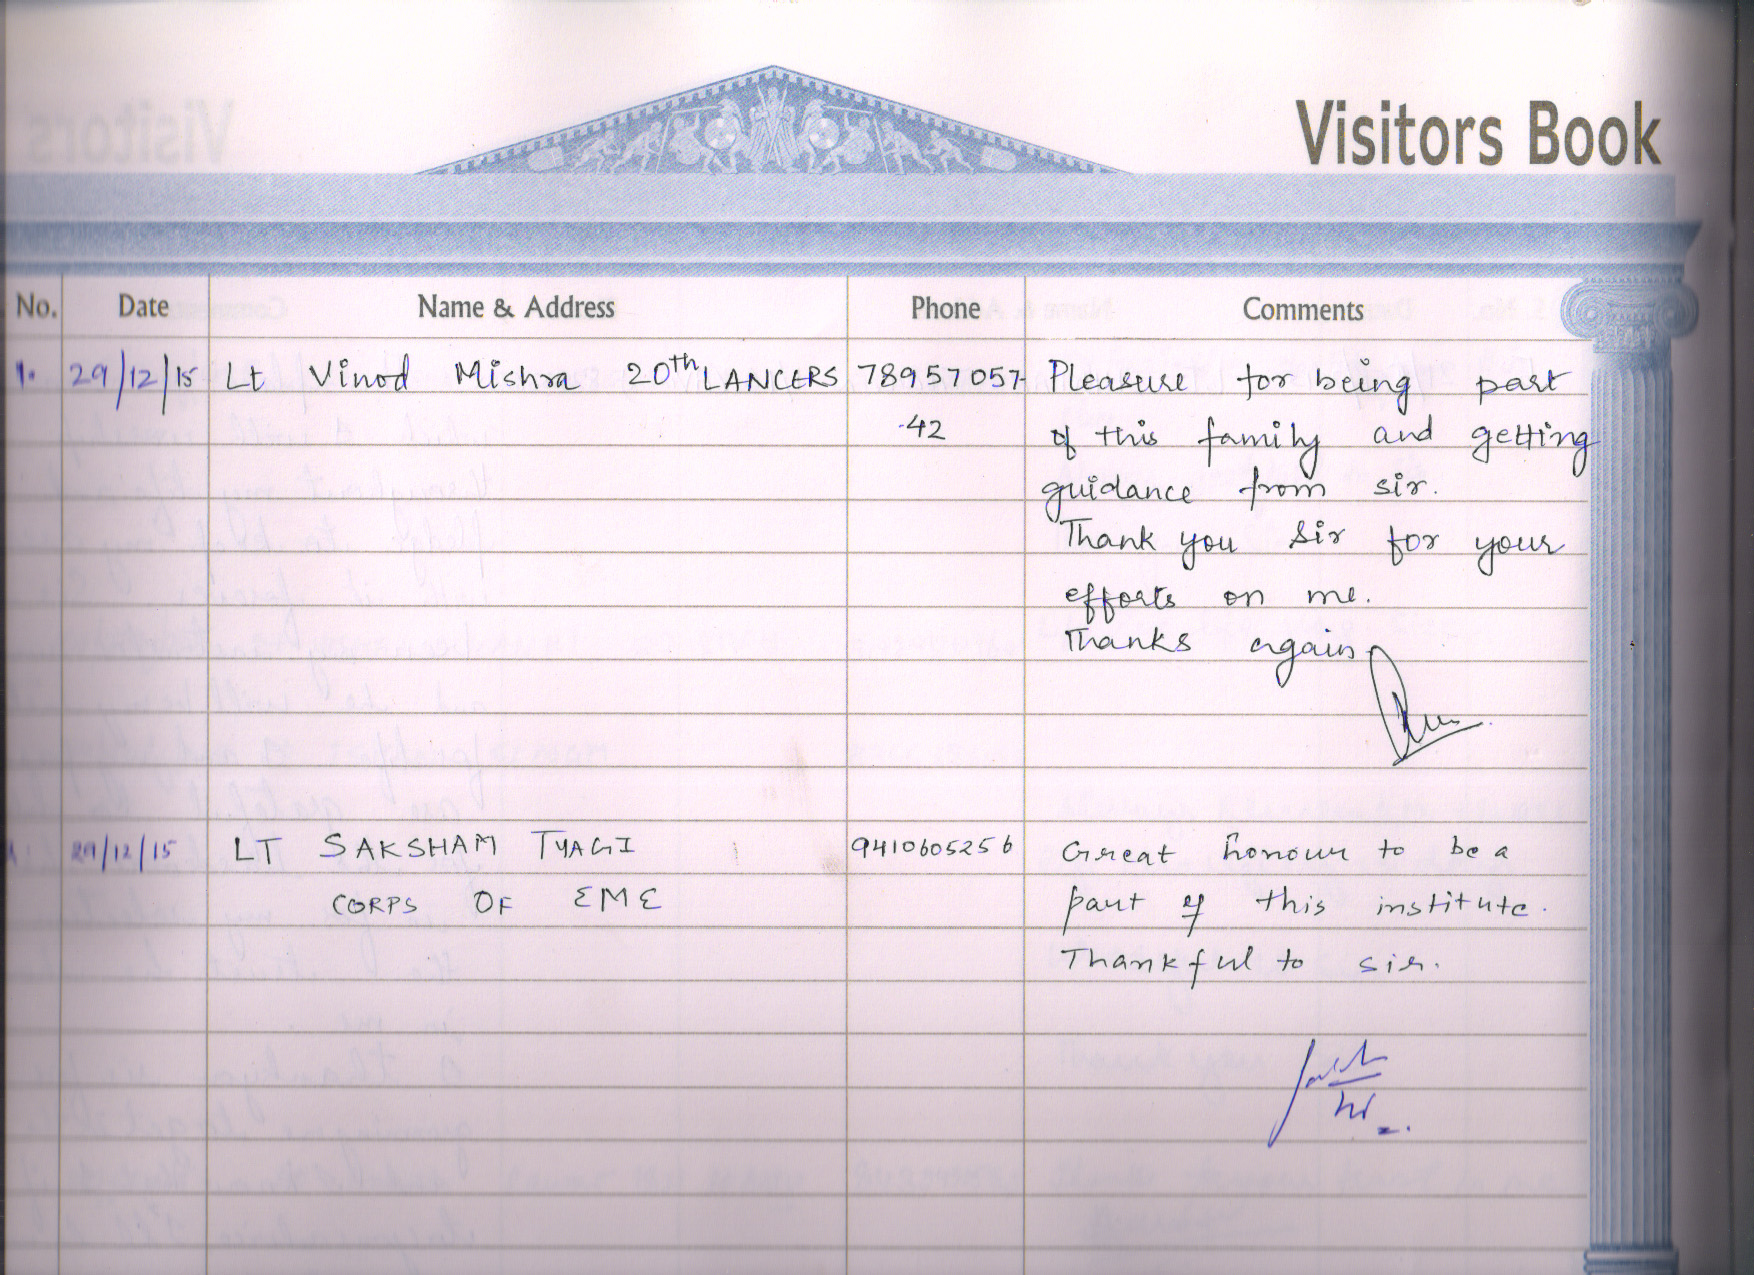 Visitors Book
No. Date Name & Address Phone Comments
1. 29/12/15 Lt Vinod Mishra 20th LANCERS 78957057 Pleasure for being part
-42 of this family and getting
guidance from sir.
Thank you Sir for your
efforts on me.
Thanks again
29/12/15 LT SAKSHAM TYAGI 9410605256 Great honour to be a
CORPS OF EME part of this institute.
Thankful to sir.